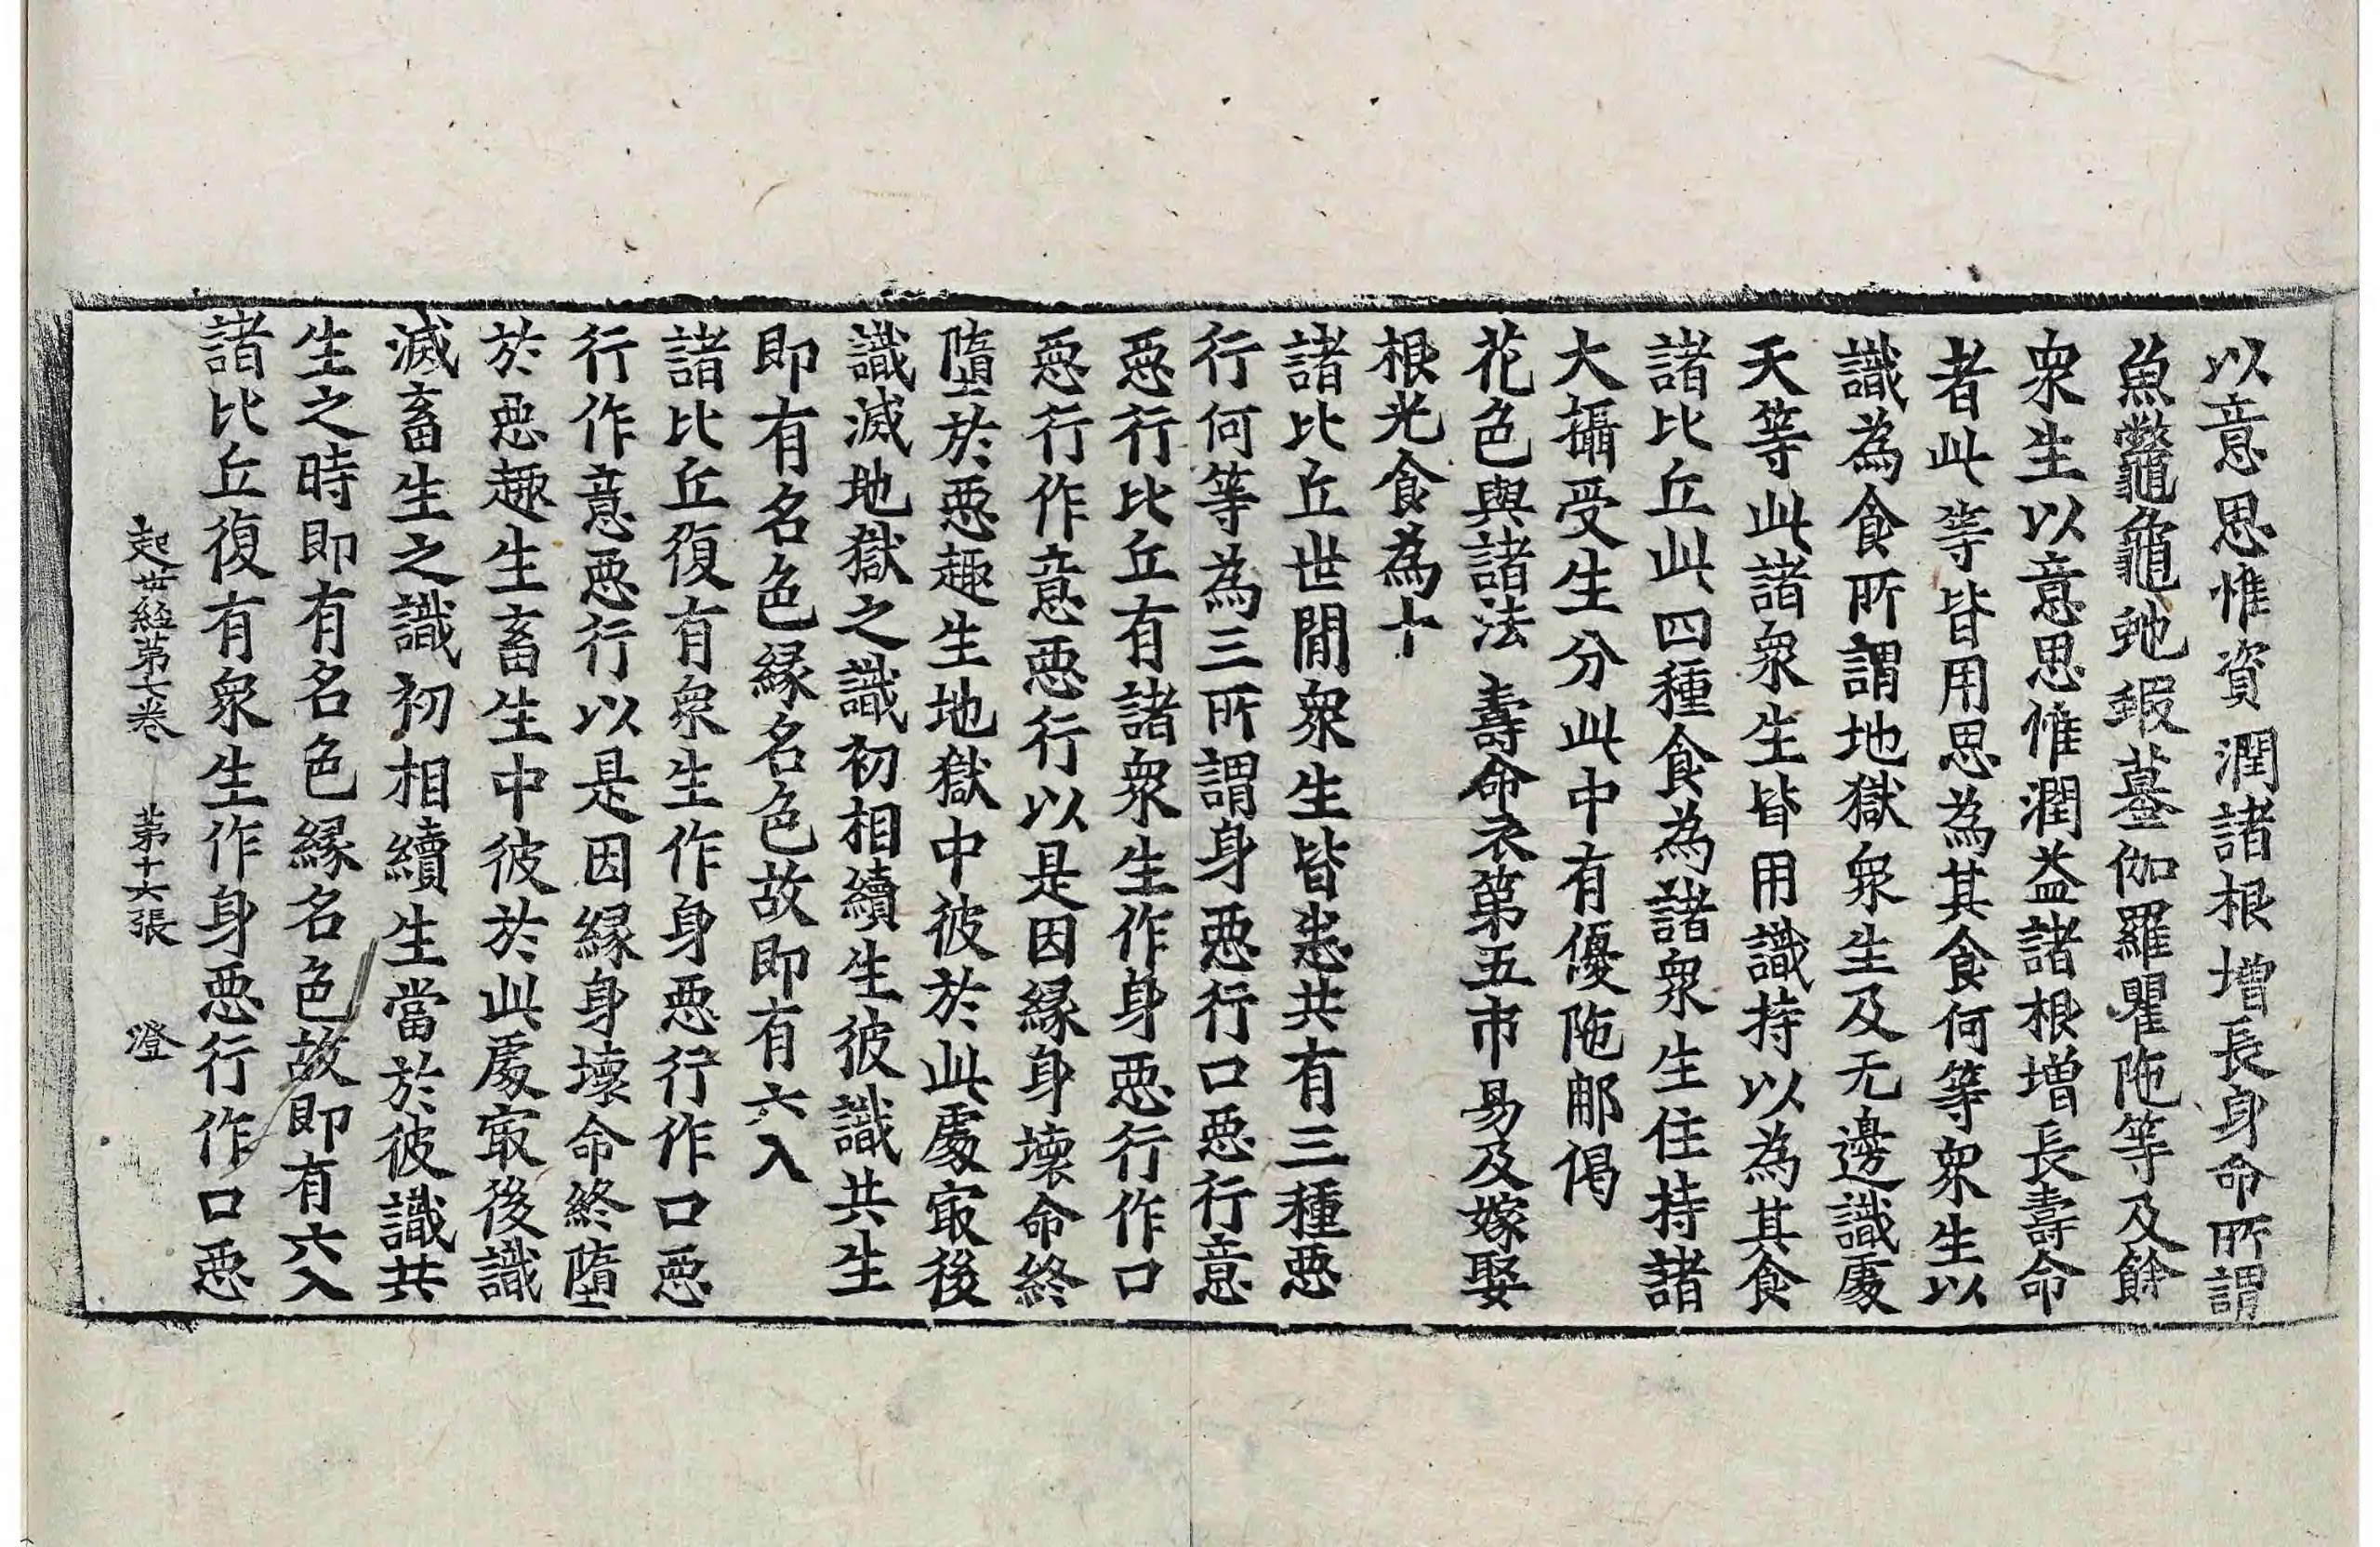 以意思惟資潤諸根增長身命所謂
魚鼈龜虵蝦蟇伽羅瞿陁等及餘
衆生以意思惟潤益諸根增長壽命
者此等皆用思為其食何等衆生以
識為食所謂地獄衆生及无邊識處
天等此諸衆生皆用識持以為其食
諸比丘此四種食為諸衆生住持諸
大攝受生分此中有優陁那偈
花色與諸法 壽命衣第五市易及嫁娶
根光食為十
諸比丘世間衆生皆悉共有三種惡
行何等為三所謂身惡行口惡行意
惡行比丘有諸衆生作身惡行作口
惡行作意惡行以是因緣身壞命終
墮於惡趣生地獄中彼於此處㝡後
識滅地獄之識初相續生彼識共生
即有名色緣名色故即有六入
諸比丘復有衆生作身惡行作口惡
行作意惡行以是因緣身壞命終墮
於惡趣生畜生中彼於此處㝡後識
滅畜生之識初相續生當於彼識共
生之時即有名色緣名色故即有六入
諸比丘復有衆生作身惡行作口惡
起世經第七卷 第十六張 澄